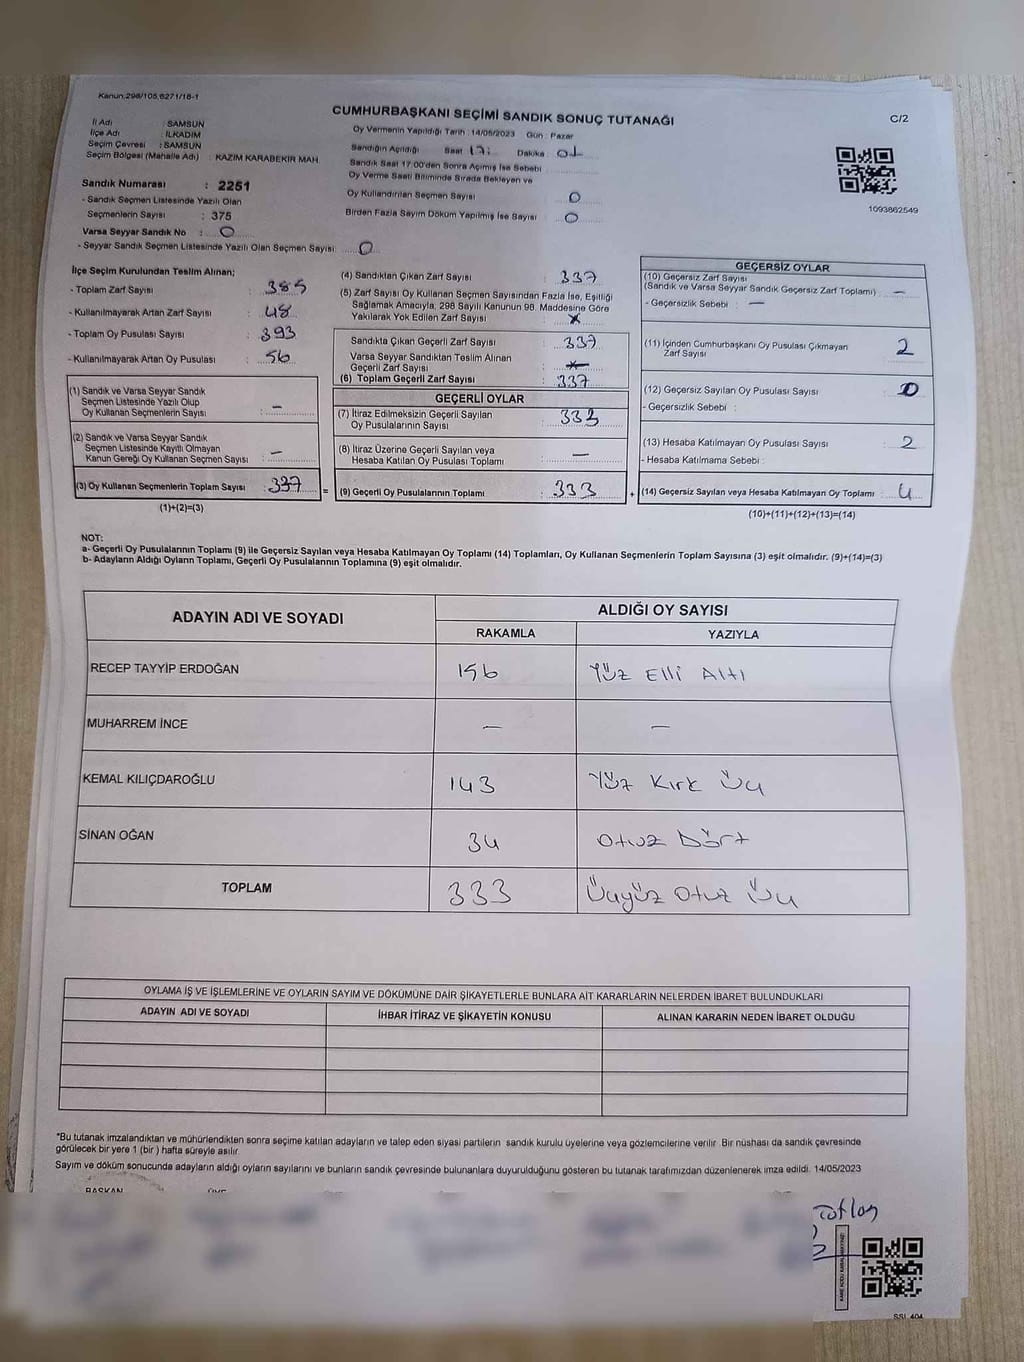 Kanun:298/105,6271/16-1
CUMHURBAŞKANI SEÇİMİ SANDIK SONUÇ TUTANAĞI
C/2
İl Adı : SAMSUN
İlçe Adı : İLKADIM
Seçim Çevresi : SAMSUN
Seçim Bölgesi (Mahalle Adı) : KAZIM KARABEKİR MAH.
Sandık Numarası : 2251
- Sandık Seçmen Listesinde Yazılı Olan
Seçmenlerin Sayısı : 375
Varsa Seyyar Sandık No : 0
- Seyyar Sandık Seçmen Listesinde Yazılı Olan Seçmen Sayısı: 0
Oy Vermenin Yapıldığı Tarih : 14/05/2023 Gün : Pazar
Sandığın Açıldığı Saat 17: Dakika : 01
Sandık Saat 17:00'den Sonra Açımış İse Sebebi :
Oy Verme Saati Bitiminde Sırada Bekleyen ve
Oy Kullandırılan Seçmen Sayısı : 0
Birden Fazla Sayım Döküm Yapılmış İse Sayısı : 0
1093862549
İlçe Seçim Kurulundan Teslim Alınan;
- Toplam Zarf Sayısı : 385
- Kullanılmayarak Artan Zarf Sayısı : 48
- Toplam Oy Pusulası Sayısı : 393
- Kullanılmayarak Artan Oy Pusulası : 56
(1) Sandık ve Varsa Seyyar Sandık
Seçmen Listesinde Yazılı Olup
Oy Kullanan Seçmenlerin Sayısı : -
(2) Sandık ve Varsa Seyyar Sandık
Seçmen Listesinde Kayıtlı Olmayan
Kanun Gereği Oy Kullanan Seçmen Sayısı : -
(3) Oy Kullanan Seçmenlerin Toplam Sayısı : 337
(1)+(2)=(3)
(4) Sandıktan Çıkan Zarf Sayısı : 337
(5) Zarf Sayısı Oy Kullanan Seçmen Sayısından Fazla İse, Eşitliği
Sağlamak Amacıyla, 298 Sayılı Kanunun 98. Maddesine Göre
Yakılarak Yok Edilen Zarf Sayısı :
Sandıkta Çıkan Geçerli Zarf Sayısı : 337
Varsa Seyyar Sandıktan Teslim Alınan
Geçerli Zarf Sayısı :
(6) Toplam Geçerli Zarf Sayısı : 337
GEÇERLİ OYLAR
(7) İtiraz Edilmeksizin Geçerli Sayılan
Oy Pusulalarının Sayısı : 333
(8) İtiraz Üzerine Geçerli Sayılan veya
Hesaba Katılan Oy Pusulası Toplamı : -
= (9) Geçerli Oy Pusulalarının Toplamı : 333
GEÇERSİZ OYLAR
(10) Geçersiz Zarf Sayısı
(Sandık ve Varsa Seyyar Sandık Geçersiz Zarf Toplamı) : -
- Geçersizlik Sebebi : -
(11) İçinden Cumhurbaşkanı Oy Pusulası Çıkmayan
Zarf Sayısı : 2
(12) Geçersiz Sayılan Oy Pusulası Sayısı : 0
- Geçersizlik Sebebi :
(13) Hesaba Katılmayan Oy Pusulası Sayısı : 2
- Hesaba Katılmama Sebebi :
+ (14) Geçersiz Sayılan veya Hesaba Katılmayan Oy Toplamı : 4
(10)+(11)+(12)+(13)=(14)
NOT:
a- Geçerli Oy Pusulalarının Toplamı (9) ile Geçersiz Sayılan veya Hesaba Katılmayan Oy Toplamı (14) Toplamları, Oy Kullanan Seçmenlerin Toplam Sayısına (3) eşit olmalıdır. (9)+(14)=(3)
b- Adayların Aldığı Oyların Toplamı, Geçerli Oy Pusulalarının Toplamına (9) eşit olmalıdır.
ADAYIN ADI VE SOYADI
ALDIĞI OY SAYISI
RAKAMLA YAZIYLA
RECEP TAYYİP ERDOĞAN 156 Yüz Elli Altı
MUHARREM İNCE - -
KEMAL KILIÇDAROĞLU 143 Yüz Kırk Üç
SİNAN OĞAN 34 Otuz Dört
TOPLAM 333 Üçyüz Otuz Üç
OYLAMA İŞ VE İŞLEMLERİNE VE OYLARIN SAYIM VE DÖKÜMÜNE DAİR ŞİKAYETLERLE BUNLARA AİT KARARLARIN NELERDEN İBARET BULUNDUKLARI
ADAYIN ADI VE SOYADI İHBAR İTİRAZ VE ŞİKAYETİN KONUSU ALINAN KARARIN NEDEN İBARET OLDUĞU
*Bu tutanak imzalandıktan ve mühürlendikten sonra seçime katılan adayların ve talep eden siyasi partilerin sandık kurulu üyelerine veya gözlemcilerine verilir. Bir nüshası da sandık çevresinde
görülecek bir yere 1 (bir) hafta süreyle asılır.
Sayım ve döküm sonucunda adayların aldığı oyların sayılarını ve bunların sandık çevresinde bulunanlara duyurulduğunu gösteren bu tutanak tarafımızdan düzenlenerek imza edildi. 14/05/2023
BAŞKAN ÜYE
SSI 404